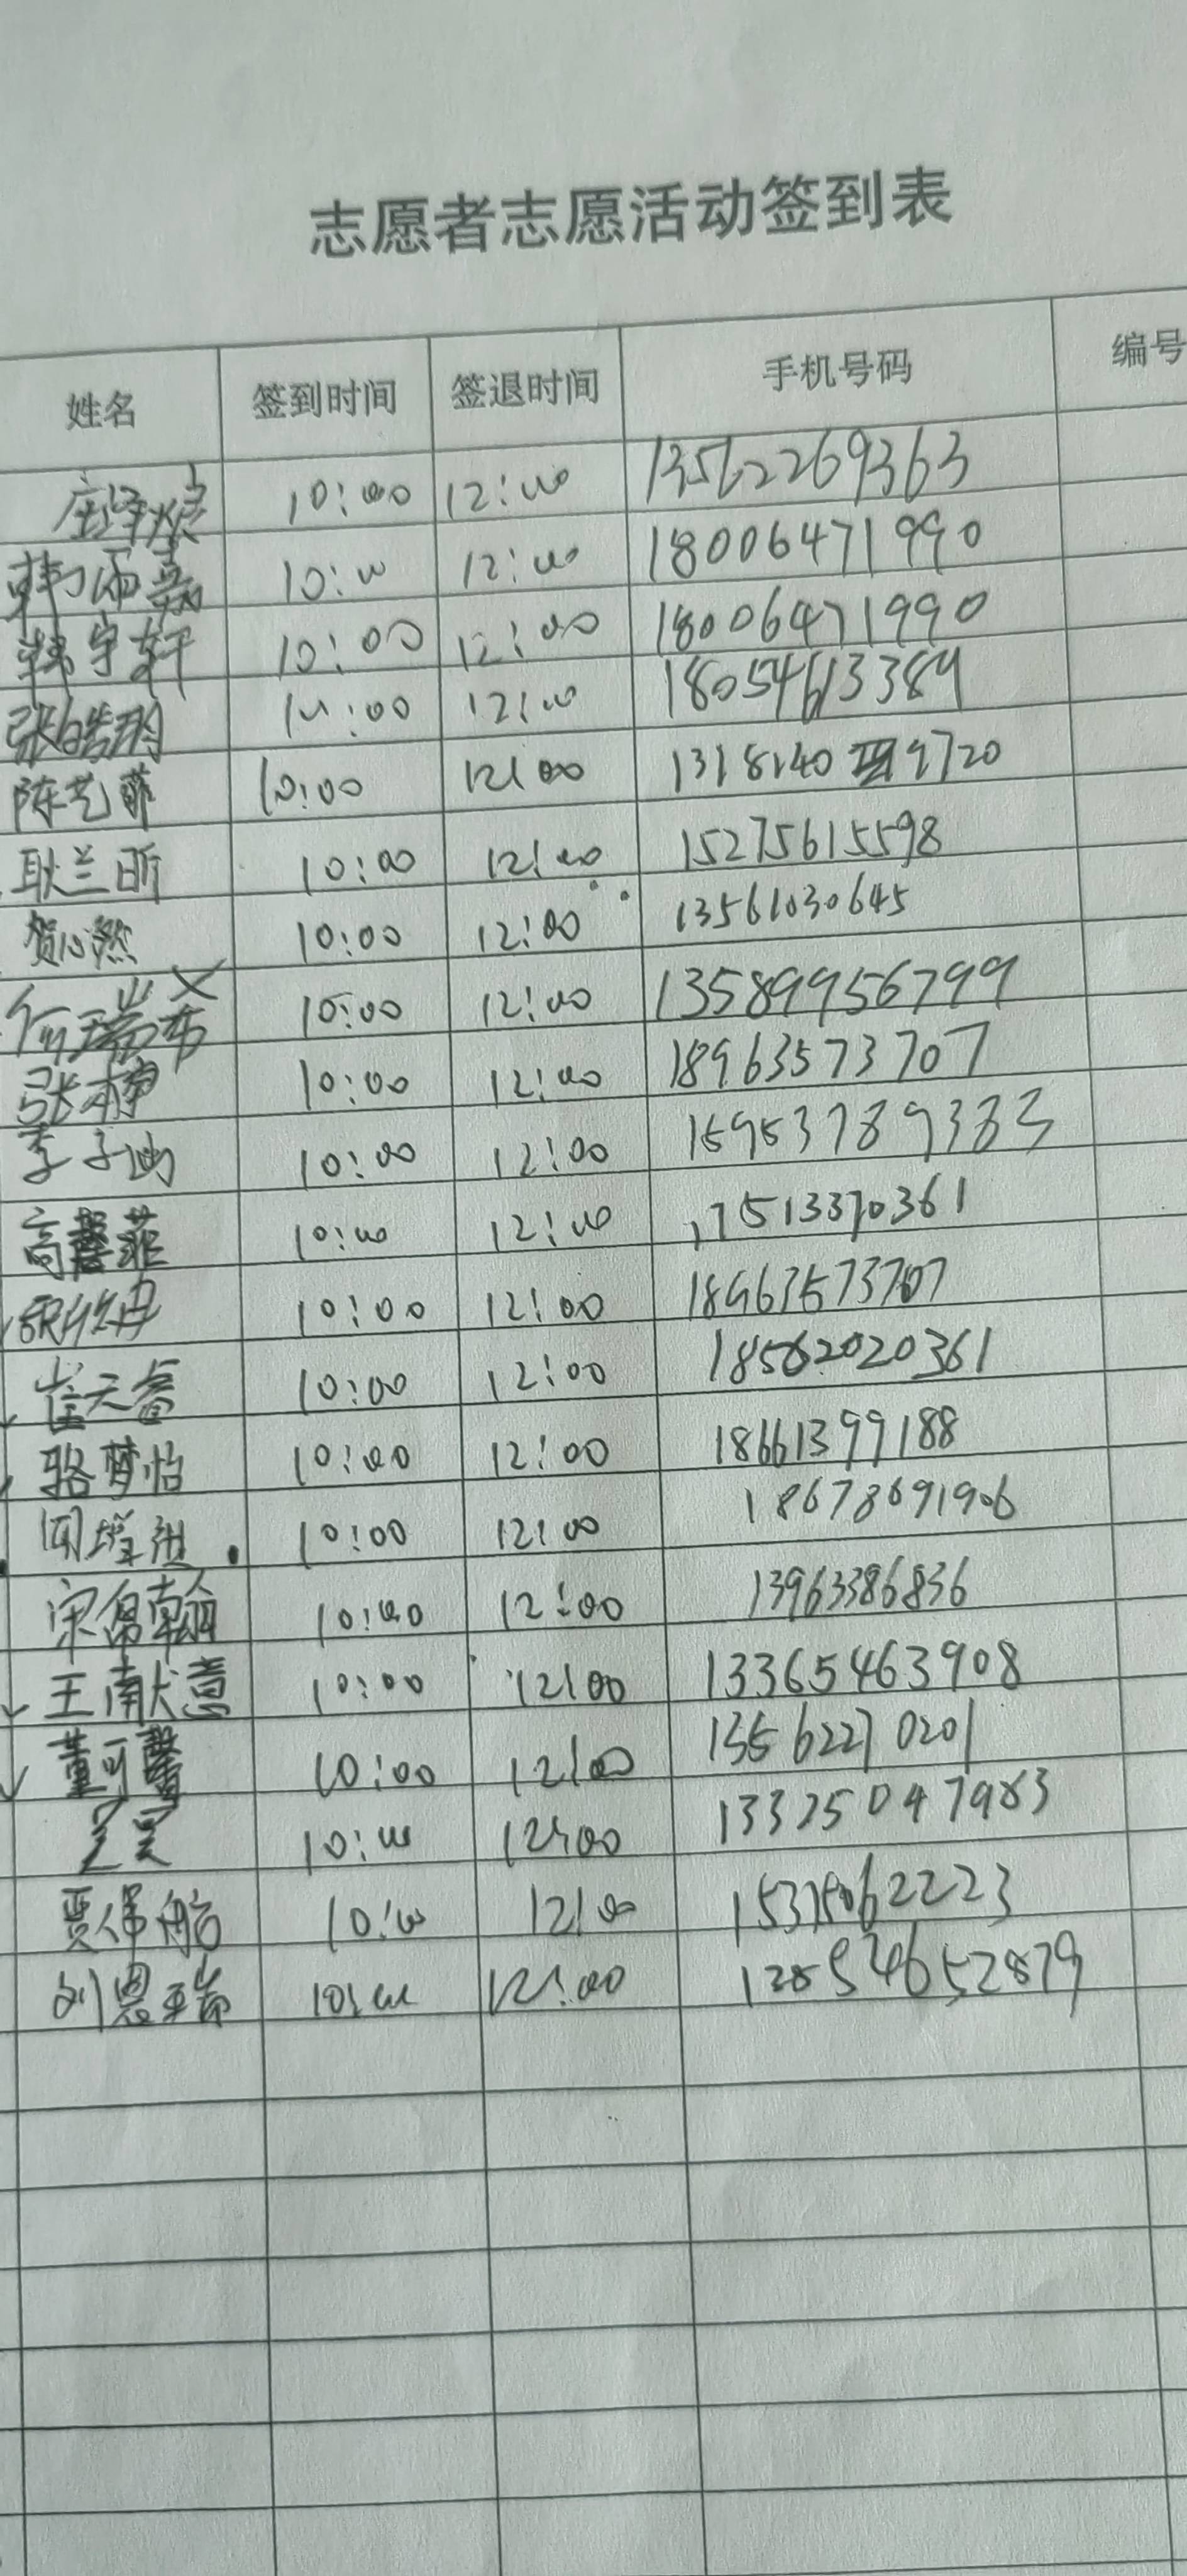 志愿者志愿活动签到表
姓名 签到时间 签退时间 手机号码 编号
10:00 12:00 13562269363
韩雨嘉 10:00 12:00 18006471990
韩宇轩 10:00 12:00 18006471990
张皓玥 10:00 12:00 18054613384
陈艺菲 10:00 12:00 1318140 9720
耿兰昕 10:00 12:00 15275615598
贺心然 10:00 12:00 13561030645
10:00 12:00 135899956799
张婷 10:00 12:00 18963573707
李子涵 10:00 12:00 15953789383
高馨菲 10:00 12:00 17513370361
10:00 12:00 18963573707
崔天睿 10:00 12:00 18562020361
骆梦怡 10:00 12:00 18661399188
10:00 12:00 18678691906
10:00 12:00 13963386836
王献意 10:00 12:00 13365463908
董可馨 10:00 12:00 13562270201
10:00 12:00 13325047983
10:00 12:00
刘恩瑞 10:00 12:00